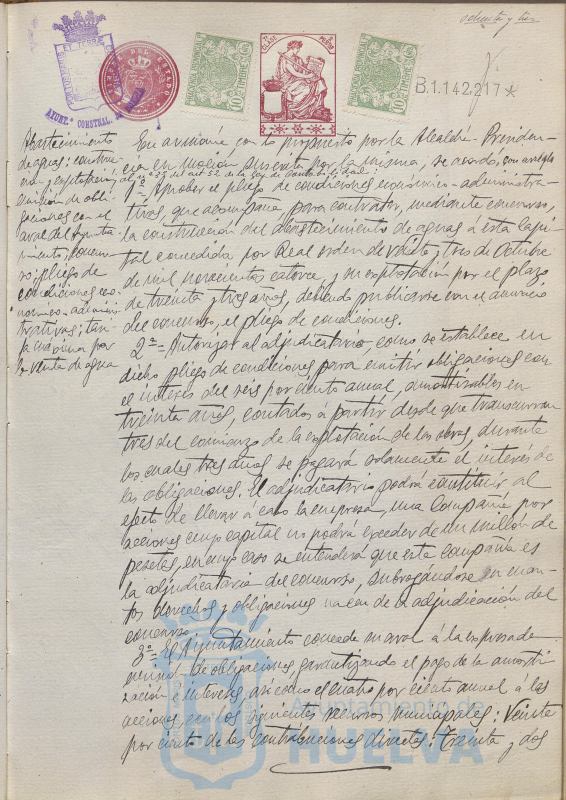 ochenta y tres
B.1.142.217*
Abastecimiento
de aguas: construc-
ción y explotación;
emisión de obli-
gaciones con el
aval del Ayunta-
miento; concur-
so; pliego de
condiciones eco-
nómico-adminis-
trativas; tari-
fa máxima por
la venta de agua
En armonía con lo propuesto por la Alcaldía Presiden-
cia en moción suscrita por la misma, se acordó, con arreglo
al del art
1º= Aprobar el pliego de condiciones económico-administra-
tivas, que acompaña, para contratar, mediante concurso,
la construcción del abastecimiento de aguas á esta capi-
tal concedida por Real orden de veinte y tres de Octubre
de mil novecientos catorce, y su explotación por el plazo
de treinta y tres años, debiendo publicarse con el anuncio
del concurso, el pliego de condiciones.
2º= Autorizar al adjudicatario, como se establece en
dicho pliego de condiciones para emitir obligaciones con
el interés del seis por ciento anual, amortizables en
treinta años, contados á partir desde que transcurran
tres del comienzo de la explotación de las obras, durante
los cuales tres años se pagará solamente el interés de
las obligaciones. El adjudicatario podrá constituir al
efecto de llevar á cabo la empresa, una Compañía por
acciones cuyo capital no podrá exceder de un millón de
pesetas, en cuyo caso se entenderá que esta compañía es
la adjudicataria del concurso, subrogándose en cuan-
tos derechos y obligaciones nacen de la adjudicación del
concurso.
3º= El Ayuntamiento concede su aval á la expresada
emisión de obligaciones, garantizando el pago de la amorti-
zación é intereses, así como el cuatro por ciento anual á las
acciones, con los siguientes recursos municipales: Veinte
por ciento de las contribuciones directas; Treinta y dos
Ayuntamiento de
HUELVA